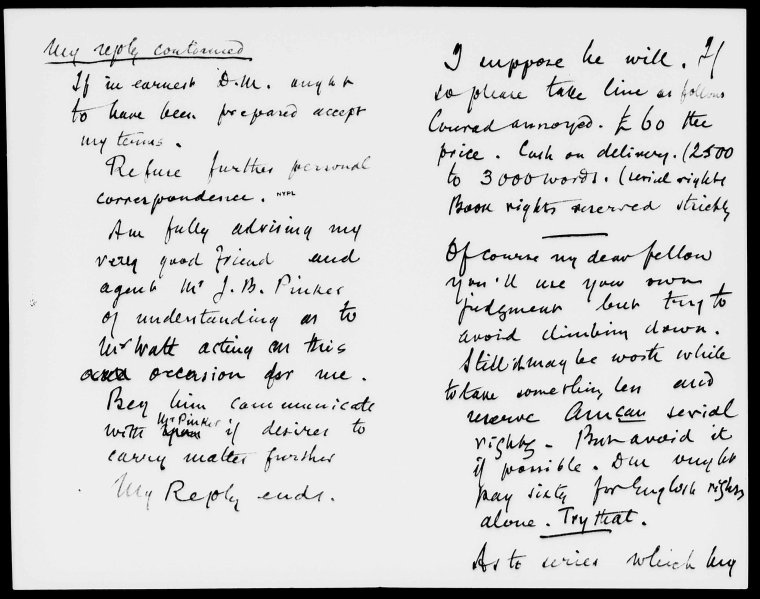 My reply continued
If in earnest D.M. ought
to have been prepared accept
my terms.
Refuse further personal
correspondence. NYPL
Am fully advising my
very good friend and
agent Mr J. B. Pinker
of understanding as to
Mr Watt acting on this
occasion for me.
Beg him communicate
with Mr Pinker if desires to
carry matter further
My Reply ends.
I suppose he will. If
so please take line as follows
Conrad annoyed. £60 the
price. Cash on delivery. (2500
to 3000 words. (serial rights
Book rights reserved strictly
Of course my dear fellow
you'll use your own
judgment but try to
avoid climbing down.
Still it may be worth while
to take something less and
reserve Amcan serial
rights. But avoid it
if possible. DM ought
pay sixty for English rights
alone. Try that.
As to series which my